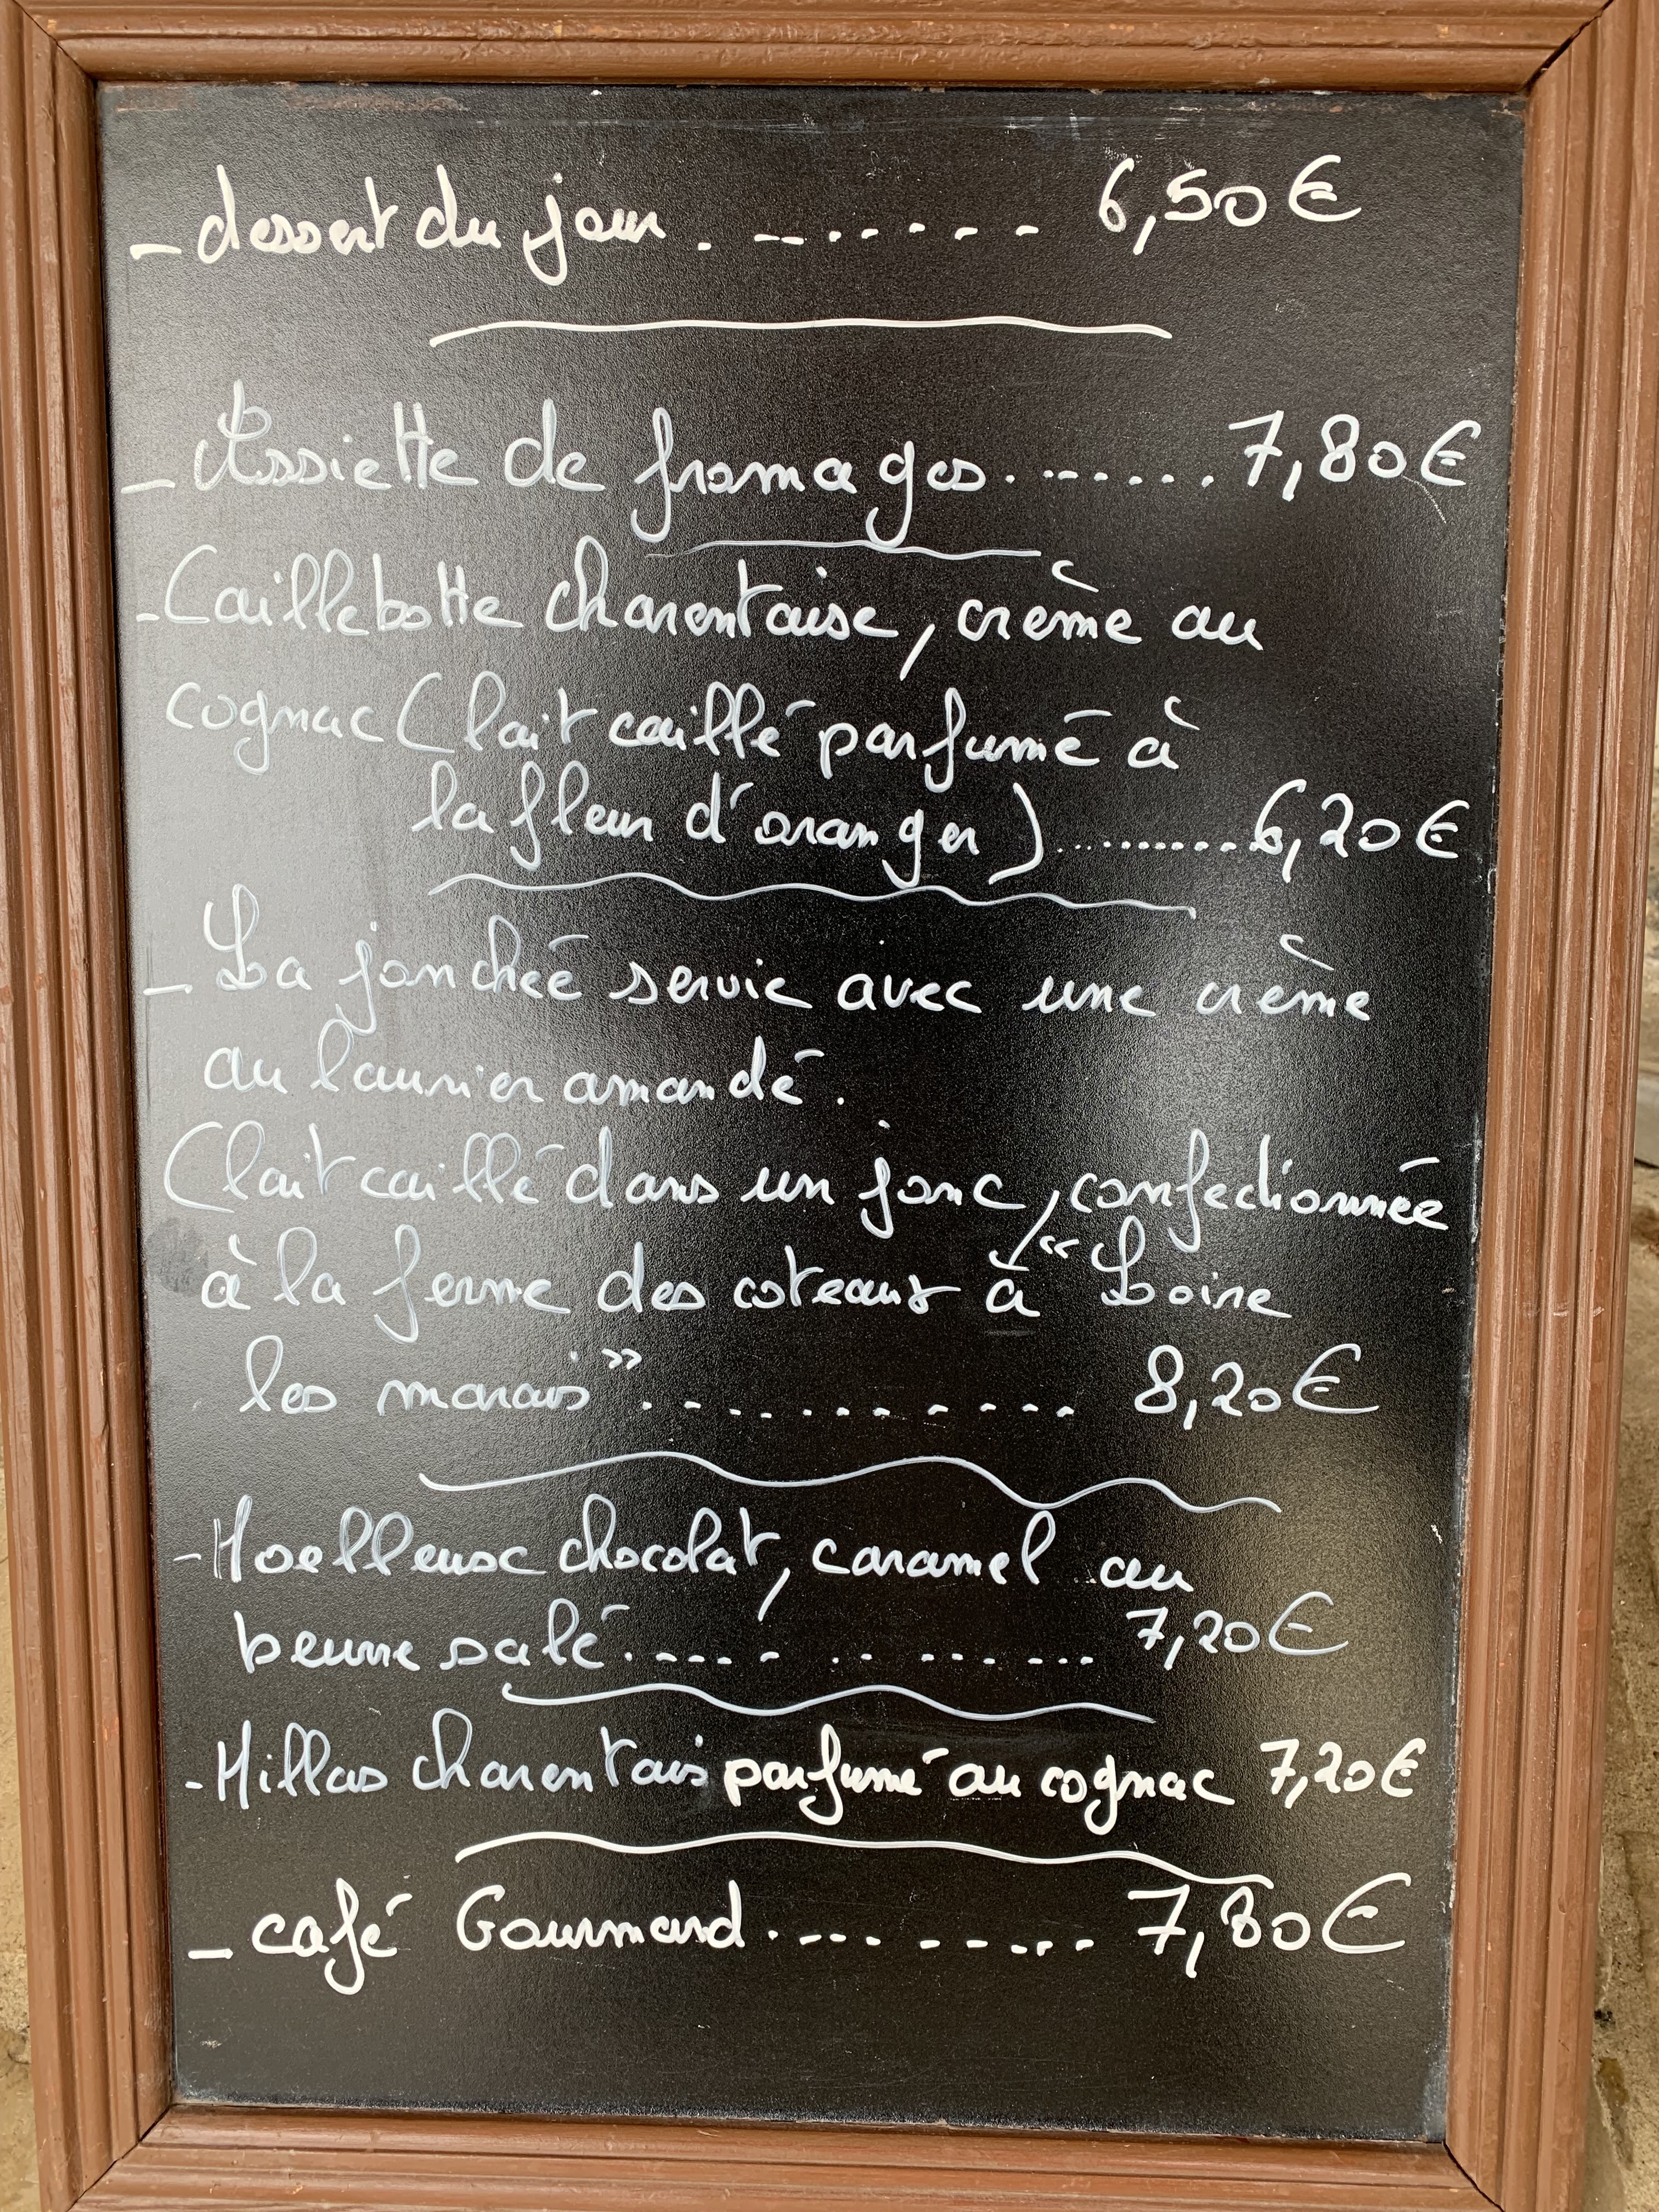 - dessert du jour . - - . . . - - - 6,50€
- Assiette de fromages . . - . . . . 7,80€
- Caillebotte charentaise, crème au
cognac (lait caillé parfumé à
la fleur d'oranger) ........... 6,20€
- La jonchée servie avec une crème
au laurier amandé.
(lait caillé dans un jonc, confectionnée
à la ferme des coteaux à "Loire
les marais" . . . . . . . . . . . . 8,20€
- Moelleux chocolat, caramel au
beurre salé . - - . - . . - . . - - . 7,20€
- Millas charentais parfumé au cognac 7,20€
- café Gourmand . . - - . - - - . . - 7,80€